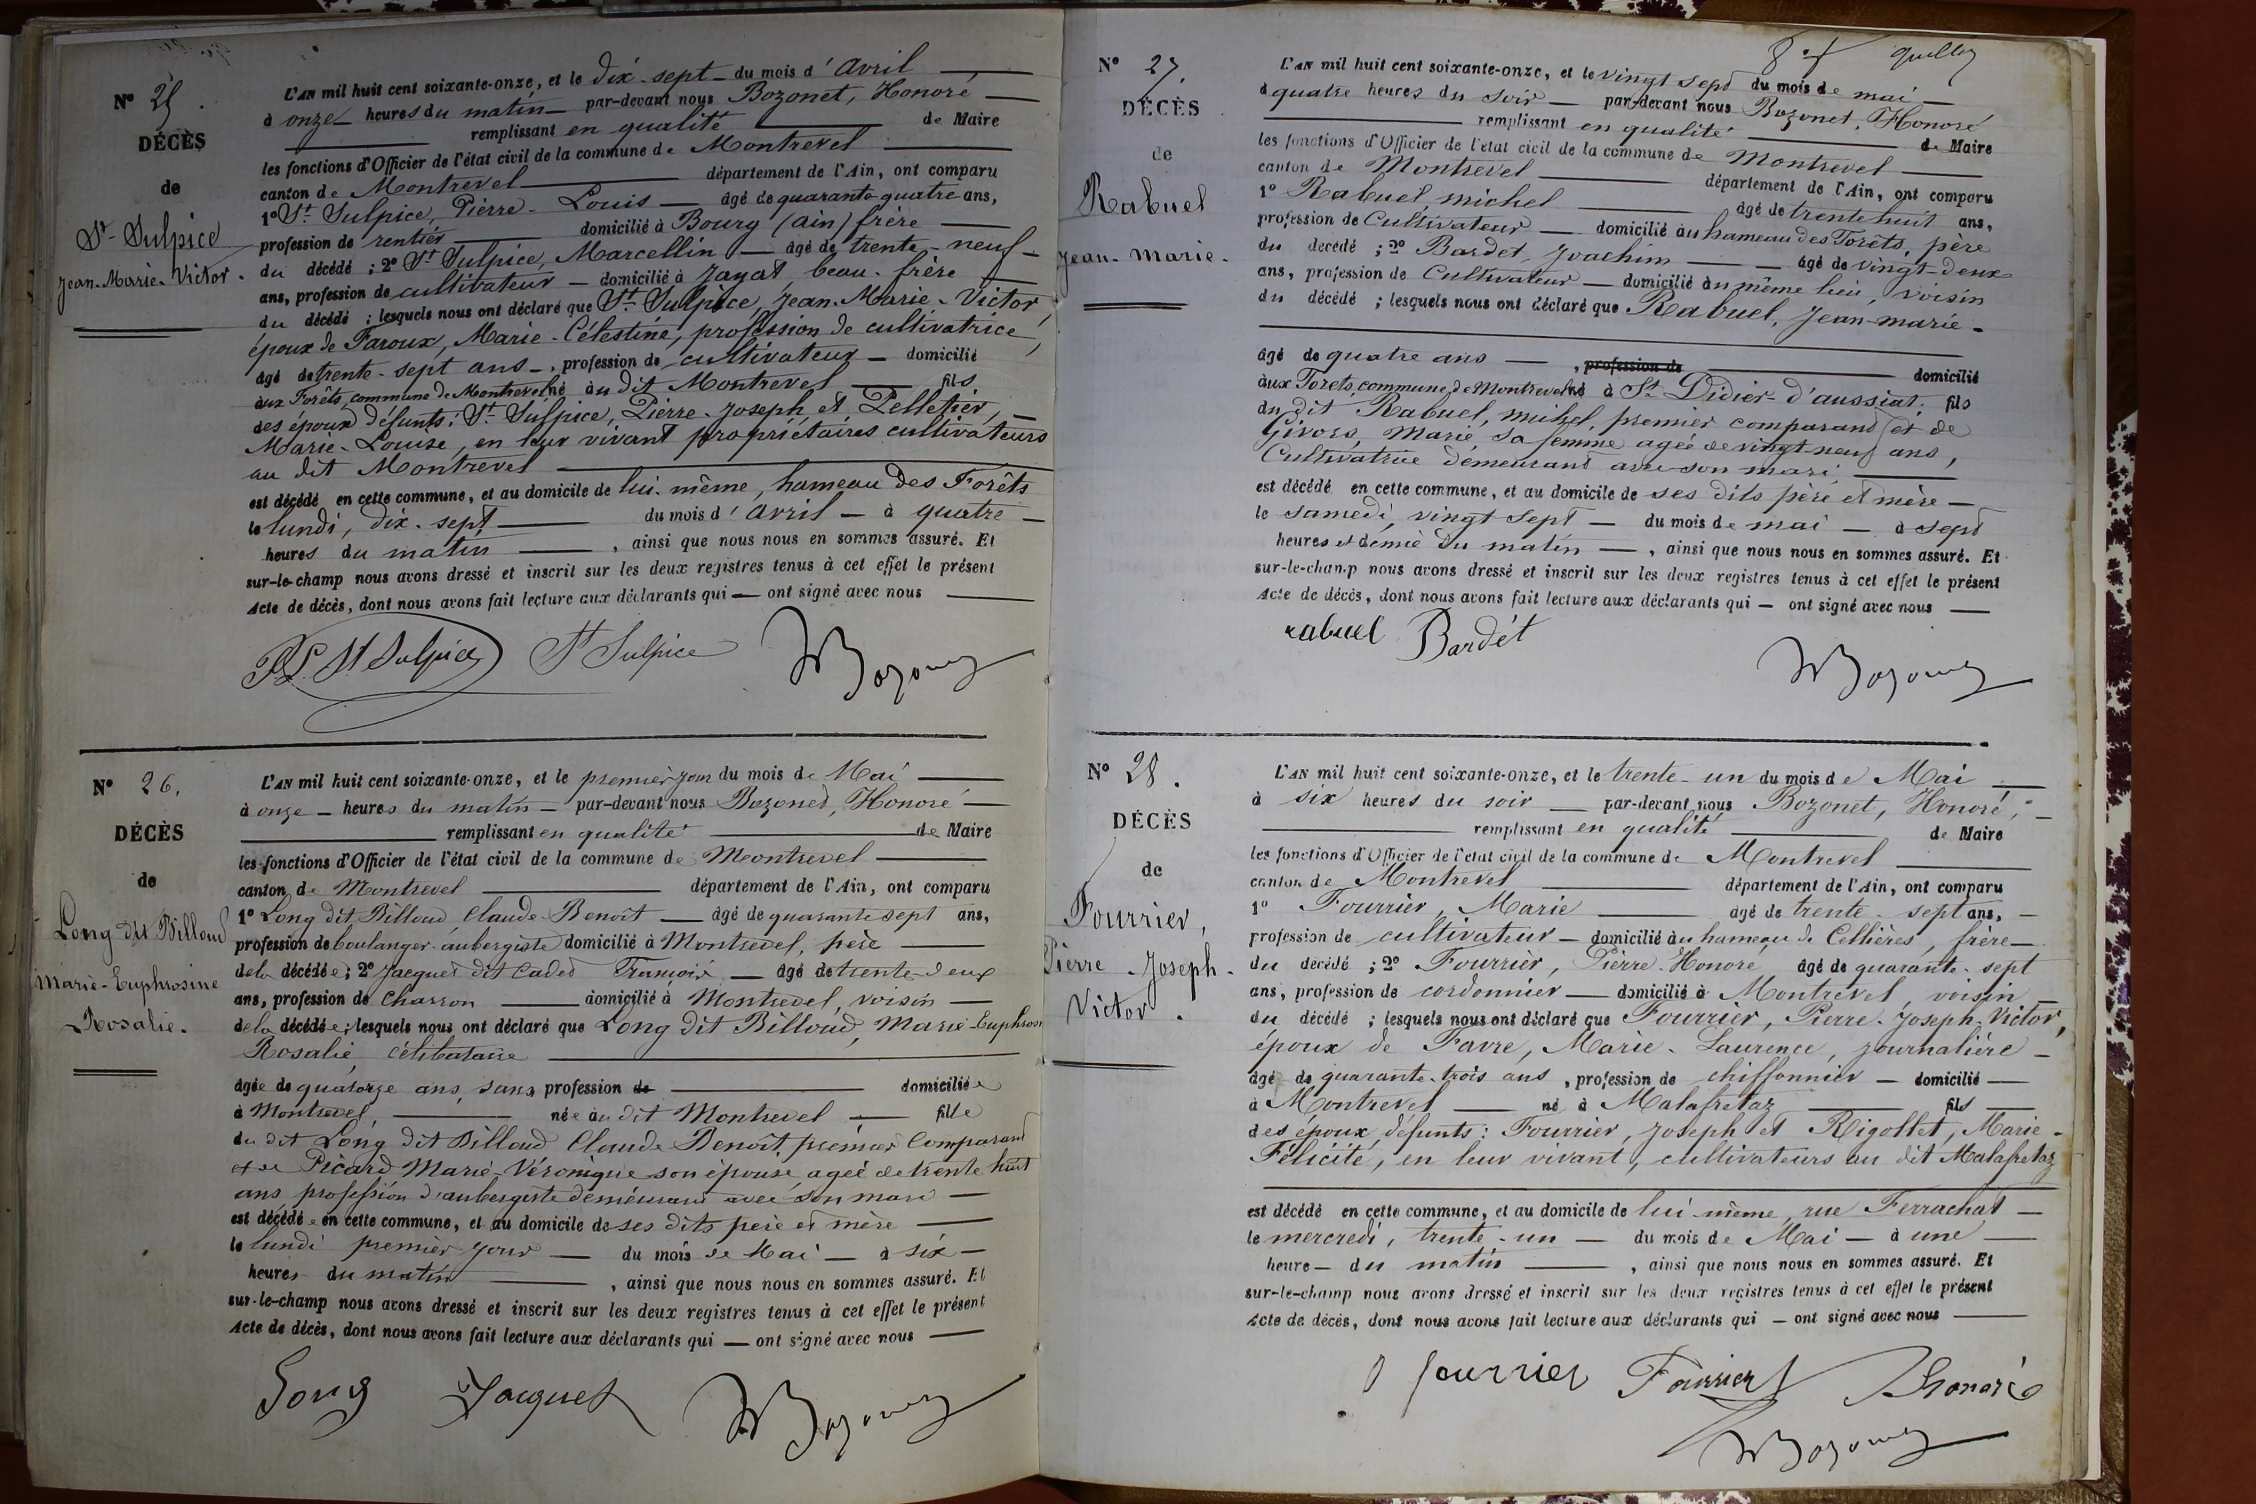 N° 25.
DÉCÈS
de
St Sulpice
Jean-Marie-Victor.
L'AN mil huit cent soixante-onze, et le dix-sept du mois d'Avril
à onze heures du matin par-devant nous Bozonet, Honoré
remplissant en qualité de Maire
les fonctions d'Officier de l'état civil de la commune de Montrevel
canton de Montrevel département de l'Ain, ont comparu
1° St Sulpice, Pierre-Louis âgé de quarante-quatre ans,
profession de rentier domicilié à Bourg (ain) frère
du décédé ; 2° St Sulpice, Marcellin âgé de trente-neuf
ans, profession de cultivateur domicilié à Jayat, beau-frère
du décédé ; lesquels nous ont déclaré que St Sulpice, Jean-Marie-Victor,
époux de Faroux, Marie-Célestine, profession de cultivatrice,
âgé de trente-sept ans, profession de cultivateur domicilié
aux Forêts, commune de Montrevel né au dit Montrevel fils
des époux défunts : St Sulpice, Pierre-Joseph et Pelletier,
Marie-Louise, en leur vivant propriétaires cultivateurs
au dit Montrevel
est décédé en cette commune, et au domicile de lui-même, hameau des Forêts
le lundi, dix-sept du mois d'Avril à quatre
heures du matin, ainsi que nous nous en sommes assuré. Et
sur-le-champ nous avons dressé et inscrit sur les deux registres tenus à cet effet le présent
Acte de décès, dont nous avons fait lecture aux déclarants qui ont signé avec nous
P.L. St Sulpice St Sulpice Bozonet
N° 26.
DÉCÈS
de
Long dit Billoud
Marie-Euphrosine
Rosalie.
L'AN mil huit cent soixante-onze, et le premier jour du mois de Mai
à onze heures du matin par-devant nous Bozonet, Honoré
remplissant en qualité de Maire
les fonctions d'Officier de l'état civil de la commune de Montrevel
canton de Montrevel département de l'Ain, ont comparu
1° Long dit Billoud, Claude-Benoit âgé de quarante sept ans,
profession de boulanger-aubergiste domicilié à Montrevel, père
de la décédée ; 2° Jacquet dit Cadet François âgé de trente-deux
ans, profession de Charron domicilié à Montrevel, voisin
de la décédée ; lesquels nous ont déclaré que Long dit Billoud, Marie-Euphrosine
Rosalie, célibataire
âgée de quatorze ans, sans profession de domiciliée
à Montrevel, née au dit Montrevel fille
du dit Long dit Billoud Claude Benoit, premier Comparant
et de Picard Marie-Véronique son épouse, agée de trente huit
ans profession d'aubergiste demeurant avec son mari
est décédée en cette commune, et au domicile de ses dits père et mère
le lundi premier jour du mois de Mai à six
heures du matin, ainsi que nous nous en sommes assuré. Et
sur-le-champ nous avons dressé et inscrit sur les deux registres tenus à cet effet le présent
Acte de décès, dont nous avons fait lecture aux déclarants qui ont signé avec nous
Long Jacquet Bozonet
N° 27.
DÉCÈS
de
Rabuel
Jean-Marie.
L'AN mil huit cent soixante-onze, et le vingt sept du mois de mai
à quatre heures du soir par-devant nous Bozonet, Honoré
remplissant en qualité de Maire
les fonctions d'Officier de l'état civil de la commune de Montrevel
canton de Montrevel département de l'Ain, ont comparu
1° Rabuel, michel âgé de trente huit ans,
profession de Cultivateur domicilié au hameau des Forêts, père
du décédé ; 2° Bardet, Joachim âgé de vingt-deux
ans, profession de Cultivateur domicilié au même lieu, voisin
du décédé ; lesquels nous ont déclaré que Rabuel, Jean-marie
âgé de quatre ans, profession de domicilié
aux Forets, commune de Montrevel né à St Didier-d'aussiat, fils
du dit Rabuel, michel, premier comparant et de
Givors, Marie sa femme agée de vingt-neuf ans,
Cultivatrice demeurant avec son mari
est décédé en cette commune, et au domicile de ses dits père et mère
le samedi, vingt sept du mois de mai à sept
heures et demie du matin, ainsi que nous nous en sommes assuré. Et
sur-le-champ nous avons dressé et inscrit sur les deux registres tenus à cet effet le présent
Acte de décès, dont nous avons fait lecture aux déclarants qui ont signé avec nous
rabuel Bardét Bozonet
N° 28.
DÉCÈS
de
Fourrier,
Pierre-Joseph-
Victor.
L'AN mil huit cent soixante-onze, et le trente-un du mois de Mai
à six heures du soir par-devant nous Bozonet, Honoré,
remplissant en qualité de Maire
les fonctions d'Officier de l'état civil de la commune de Montrevel
canton de Montrevel département de l'Ain, ont comparu
1° Fourrier, Marie âgé de trente-sept ans,
profession de cultivateur domicilié au hameau de Cellières, frère
du décédé ; 2° Fourrier, Pierre-Honoré âgé de quarante-sept
ans, profession de cordonnier domicilié à Montrevel, voisin
du décédé ; lesquels nous ont déclaré que Fourrier, Pierre-Joseph-Victor,
époux de Favre, Marie-Laurence, journalière
âgé de quarante-trois ans, profession de chiffonnier domicilié
à Montrevel né à Malafretaz fils
des époux défunts : Fourrier, Joseph et Rigottet, Marie-
Félicité, en leur vivant, cultivateurs au dit Malafretaz
est décédé en cette commune, et au domicile de lui-même, rue Ferrachat
le mercredi, trente-un du mois de Mai à une
heure du matin, ainsi que nous nous en sommes assuré. Et
sur-le-champ nous avons dressé et inscrit sur les deux registres tenus à cet effet le présent
Acte de décès, dont nous avons fait lecture aux déclarants qui ont signé avec nous
fourrier Fourrier Honoré
Bozonet